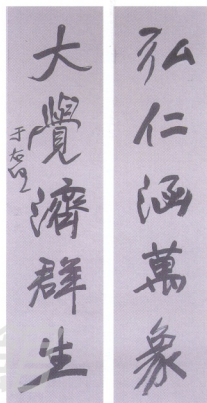 弘仁涵萬象
大覺濟群生
于右任